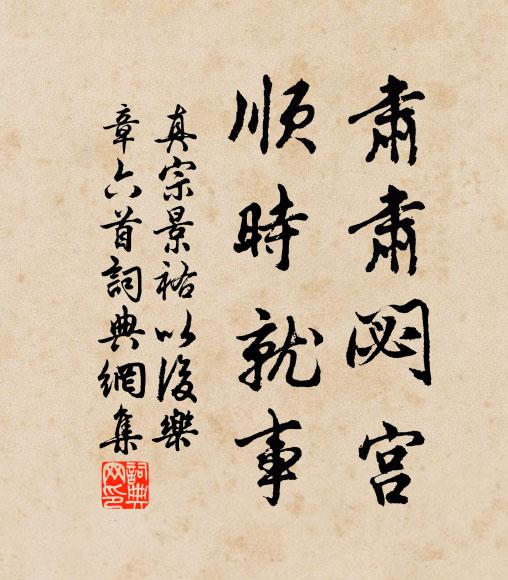 肅肅閟宮
順時就事
真宗景祐以後樂
章六首詞典網集
詞典
网印